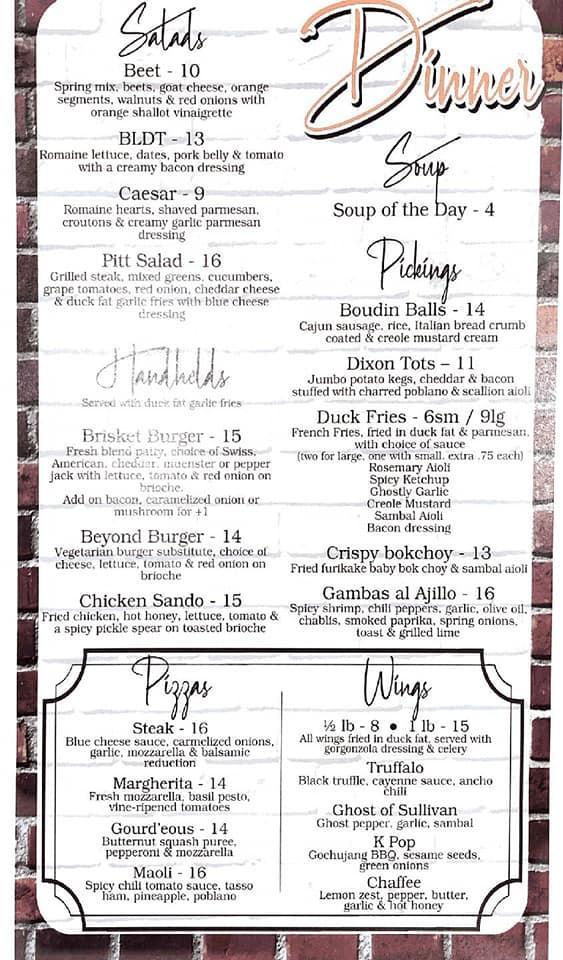 Dinner
Salads
Beet - 10
Spring mix, beets, goat cheese, orange
segments, walnuts & red onions with
orange shallot vinaigrette
BLDT - 13
Romaine lettuce, dates, pork belly & tomato
with a creamy bacon dressing
Caesar - 9
Romaine hearts, shaved parmesan,
croutons & creamy garlic parmesan
dressing
Pitt Salad - 16
Grilled steak, mixed greens, cucumbers,
grape tomatoes, red onion, cheddar cheese
& duck fat garlic fries with blue cheese
dressing
Handhelds
Served with duck fat garlic fries
Brisket Burger - 15
Fresh blend patty, choice of Swiss,
American, cheddar, muenster or pepper
jack with lettuce, tomato & red onion on
brioche.
Add on bacon, caramelized onion or
mushroom for +1
Beyond Burger - 14
Vegetarian burger substitute, choice of
cheese, lettuce, tomato & red onion on
brioche
Chicken Sando - 15
Fried chicken, hot honey, lettuce, tomato &
a spicy pickle spear on toasted brioche
Soup
Soup of the Day - 4
Pickings
Boudin Balls - 14
Cajun sausage, rice, Italian bread crumb
coated & creole mustard cream
Dixon Tots – 11
Jumbo potato kegs, cheddar & bacon
stuffed with charred poblano & scallion aioli
Duck Fries - 6sm / 9lg
French Fries, fried in duck fat & parmesan,
with choice of sauce
(two for large, one with small, extra .75 each)
Rosemary Aioli
Spicy Ketchup
Ghostly Garlic
Creole Mustard
Sambal Aioli
Bacon dressing
Crispy bokchoy - 13
Fried furikake baby bok choy & sambal aioli
Gambas al Ajillo - 16
Spicy shrimp, chili peppers, garlic, olive oil,
chablis, smoked paprika, spring onions,
toast & grilled lime
Pizzas
Steak - 16
Blue cheese sauce, carmelized onions,
garlic, mozzarella & balsamic
reduction
Margherita - 14
Fresh mozzarella, basil pesto,
vine-ripened tomatoes
Gourd'eous - 14
Butternut squash puree,
pepperoni & mozzarella
Maoli - 16
Spicy chili tomato sauce, tasso
ham, pineapple, poblano
Wings
½ lb - 8 • 1 lb - 15
All wings fried in duck fat, served with
gorgonzola dressing & celery
Truffalo
Black truffle, cayenne sauce, ancho
chili
Ghost of Sullivan
Ghost pepper, garlic, sambal
K Pop
Gochujang BBQ, sesame seeds,
green onions
Chaffee
Lemon zest, pepper, butter,
garlic & hot honey